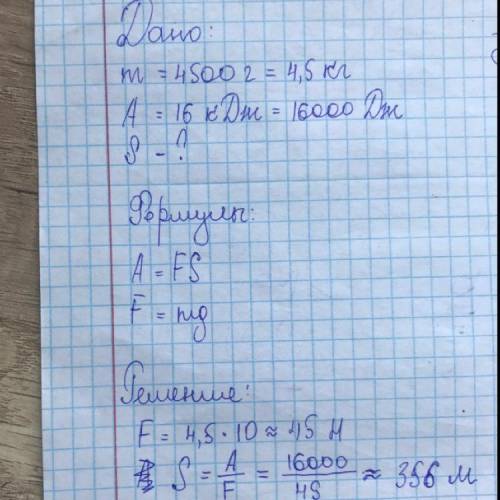 Дано:
m = 4500 г = 4,5 кг
A = 16 кДж = 16000 Дж
S - ?
Формулы:
A = FS
F = mg
Решение:
F = 4,5 · 10 ≈ 45 Н
S = A/F = 16000/45 ≈ 356 м